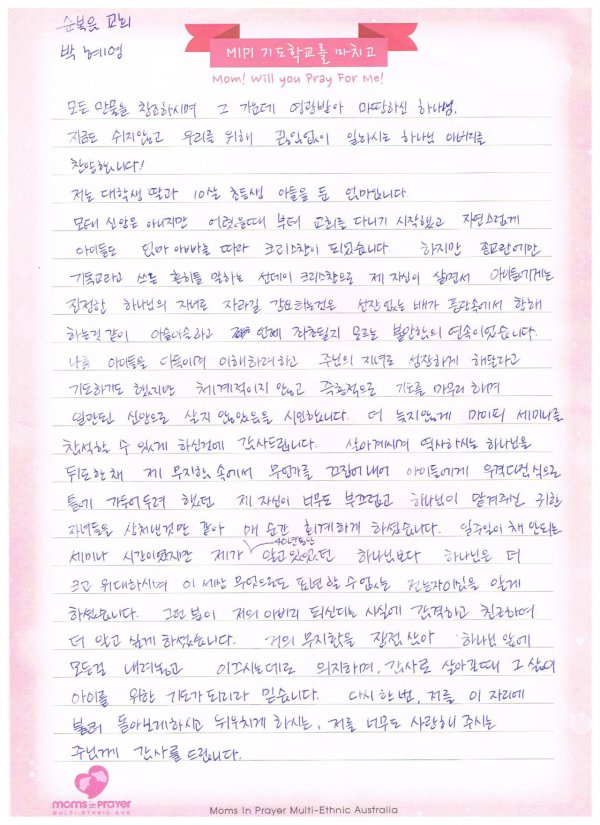 순복음 교회
박혜영
MIPI 기도학교를 마치고
Mom! Will you Pray For Me!
모든 만물을 창조하시며 그 가운데 영광받아 마땅하신 하나님,
지금도 쉬지않고 우리를 위해 끊임없이 일하시는 하나님 아버지를
찬양합니다!
저는 대학생 딸과 10살 초등생 아들을 둔 엄마입니다.
모태 신앙은 아니지만 어렸을때 부터 교회를 다니기 시작했고 자연스럽게
아이들도 엄마 아빠를 따라 크리스챤이 되었습니다. 하지만 종교란에만
기독교라고 쓰는 흔히들 말하는 선데이 크리스챤으로 제 자신이 살면서 아이들에게는
진정한 하나님의 자녀로 자라길 강요하는것은 선장 없는 배가 풍랑속에서 항해
하는것 같이 아슬아슬하고 언제 좌초될지 모르는 불안함의 연속이었습니다.
나름 아이들을 다독이며 이해하려하고 주님의 자녀로 성장하게 해달라고
기도하기도 했지만 체계적이지 않고 즉흥적으로 기도를 마무리 하며
일관된 신앙으로 살지 않았음을 시인합니다. 더 늦지않게 마미피 세미나를
참석할 수 있게 하신것에 감사드립니다. 살아계시며 역사하시는 하나님을
뒤로한채 제 무지함 속에서 무언가를 끄집어내어 아이들에게 우격다짐식으로
틀에 가두어두려 했던 제 자신이 너무도 부끄럽고 하나님이 맡겨주신 귀한
자녀들을 상처낸것만 같아 매 순간 회개하게 하셨습니다. 일주일이 채 안되는
세미나 시간이었지만 제가 40년동안 알고있었던 하나님보다 하나님은 더
크고 위대하시며 이 세상 무엇으로도 표현할 수 없는 전능자이심을 알게
하셨습니다. 그런 분이 저의 아버지 되신다는 사실에 감격하고 친밀하여
더 알고 싶게 하셨습니다. 저의 무지함을 진정 살아 하나님 앞에
모든걸 내려놓고 이끄시는데로 의지하며, 감사로 살아갈때 그 삶이
아이를 위한 기도가 되리라 믿습니다. 다시 한 번, 저를 이 자리에
불러 돌아보게하시고 뉘우치게 하시는, 저를 너무도 사랑해 주시는
주님께 감사를 드립니다.
moms in prayer
MULTI-ETHNIC AUS
Moms In Prayer Multi-Ethnic Australia